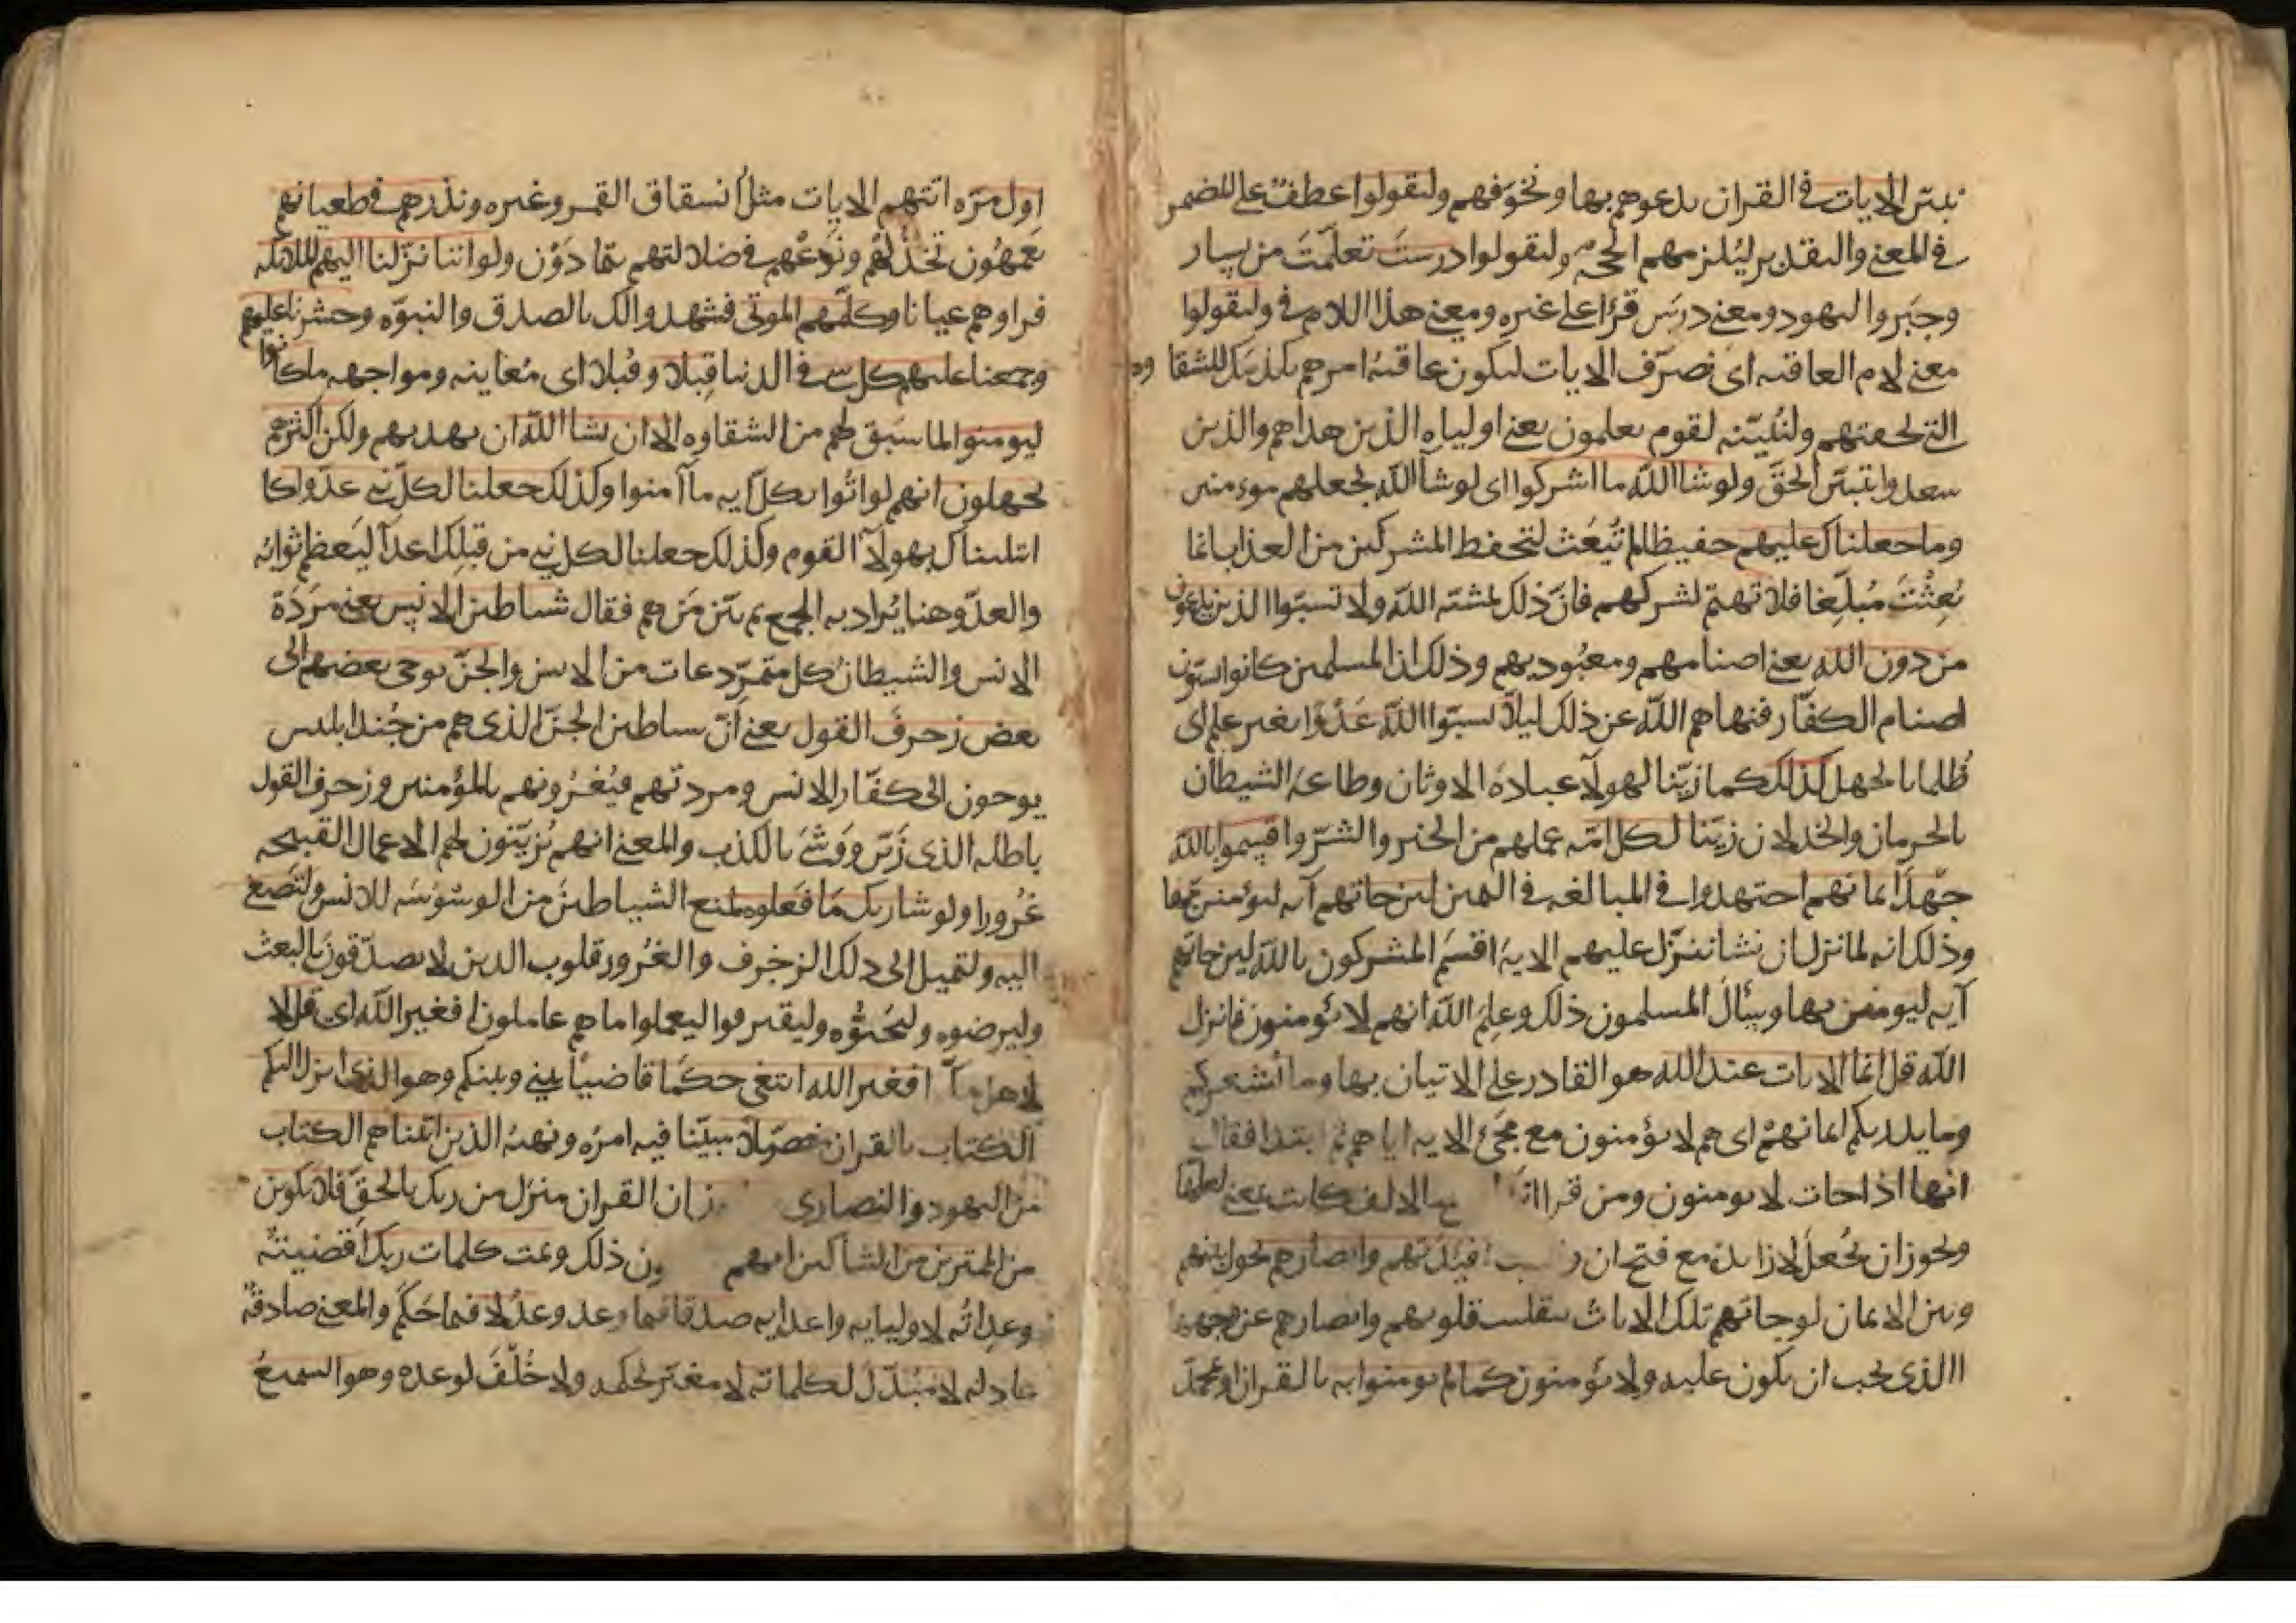 نبيّن الايات في القران ندعوهم بها ونخوّفهم وليقولوا عطفٌ على المضمر
في المعنى والتقدير ليُلزمهم الحجه وليقولوا درستَ تعلّمتَ من يسار
وجبر واليهود ومعنى درسَ قرَأ على غيره ومعنى هذا اللام في وليقولوا
معنى لام العاقبه اى نصرّف الايات ليكون عاقبةُ امرهم تكذيبك للشقاوه
التي لحقتهم ولنُبيّنه لقوم يعلمون يعني اولياه الذين هداهم والذين
سعدوا بتبيّن الحقّ ولو شا اللّه ما اشركوا اى لو شآ اللّه لجعلهم مومنين
وما جعلناك عليهم حفيظا لم تُبعَث لتحفظ المشركين من العذاب انما
بُعِثْتَ مُبلّغا فلا تهتم لشركهم فانّ ذلك لمشيّه اللّه ولا تسبّوا الذين يدعون
من دون اللّه يعني اصنامهم ومعبُوديهم وذلك ان المسلمين كانوا يسبّون
اصنام الكفّار فنهاهم اللّه عن ذلك ليلا يسبّوا اللّه عَدْوًا بغير علم اى
ظُلما بالجهل كذلك كما زيّنا لهولآ عبادةَ الاوثان وطاعةَ الشيطان
بالحرمان والخذلان زيّنا لكل امّه عملهم من الخير والشرّ واقسموا باللّه
جَهدَ ايمانهم اجتهدوا في المبالغه في اليمين لين جاتهم آيه ليؤمننّ بها
وذلك انه لما نزل ان نشا ننزّل عليهم الايةَ اقسَم المشركون باللّه لين جاتهم
آيه ليومنن بها وسأل المسلمون ذلك وعلِم اللّه انهم لا يؤمنون فانزل
اللّه قل انما الايات عند اللّه هو القادر على الاتيان بها وما يُشعركم
وما يدريكم ايمانهُمْ اى هم لا يؤمنون مع مجىء الايه اياهم ثم ابتدا فقال
انها اذا جات لا يومنون ومن قرا انها بالالف كانت بمعنى لعلّها
ويجوز ان يُجعل لا زايدة مع فتح ان افيدتهم وابصارهم نحول بينهم
وبين الايمان لو جاتهم تلك الاياتُ بتقليب قلوبهم وابصارهم عن وجهها
الذى يجب ان يكون عليه ولا يؤمنون كما لم يومنوا به بالقران او محمّد
اول مرّه اتتهم الايات مثلُ انشقاق القمر وغيره ونذرهم في طغيانهم
يَعمهُون نخذُلهُمْ ونَدَعُهم في ضلالتهم يتمادَوْن ولو اننا نزّلنا اليهم الملايكه
فراوهم عيانا وكلّمهم الموتى فشهدوا لك بالصدق والنبوّه وحشرنا عليهم
وجمعنا عليهم كل شي في الدنيا قِبلا وقُبلا اى مُعاينه ومواجهه ما كانوا
ليومنوا لما سَبق لهم من الشقاوه الا ان يشا اللّه ان يهديهم ولكن اكثرهم
يجهلون انهم لو اتُوا بكل آيه ما آمنوا وكذلك جعلنا لكل نبي عدوا كما
ابتليناك بهولآ القوم وكذلك جعلنا لكل نبي من قبلِك اعدآ ليَعظم ثوابُه
والعدّو هنا يُراد به الجمع ثم بيّن مَن هم فقال شياطين الانس يعني مرَدَة
الانس والشيطان كل متمرّد عات من الانس والجنّ يوحى بعضهم الى
بعض زخرفَ القول يعني انّ شياطين الجنّ الذى هم من جُند ابليس
يوحون الى كفّار الانس ومردتهم فيُغرُونهم بالمؤمنين وزخرف القول
باطله الذى زُيّن ووُشّىَ بالكذب والمعنى انهم يُزيّنون لهم الاعمال القبيحه
غرُورا ولو شا ربك مَا فعَلوه لمنع الشياطينَ من الوسْوسَه للانس ولتصغى
اليه ولتميل الى ذلك الزخرف والغرُور قلوب الذين لا يصدّقون بالبعث
وليرضوه وليُحبّوُه وليقترفوا ليعملوا ما هم عاملون افغير اللّه اى قل لا
افغير اللّه ابتغى حكَما قاضياً بيني وبينكم وهو الذى انزل اليكم
الكتاب بالقران مفصّلا مبيّنا فيه امرُه ونهيُه الذين اتيناهم الكتاب
من اليهود والنصارى ان القران منزل من ربك بالحقّ فلا تكونن
من الممترين من الشاكين انهم ذلك وتمت كلمات ربك اقضيتُه
وعِداتُه لاوليايه واعدايه صدقا فيما وعد وعدلا فيما حَكَم والمعنى صادقةً
عادله لا مُبدّلَ لكلماته لا مغيّر لحكمه ولا خُلفَ لوعده وهو السميعُ